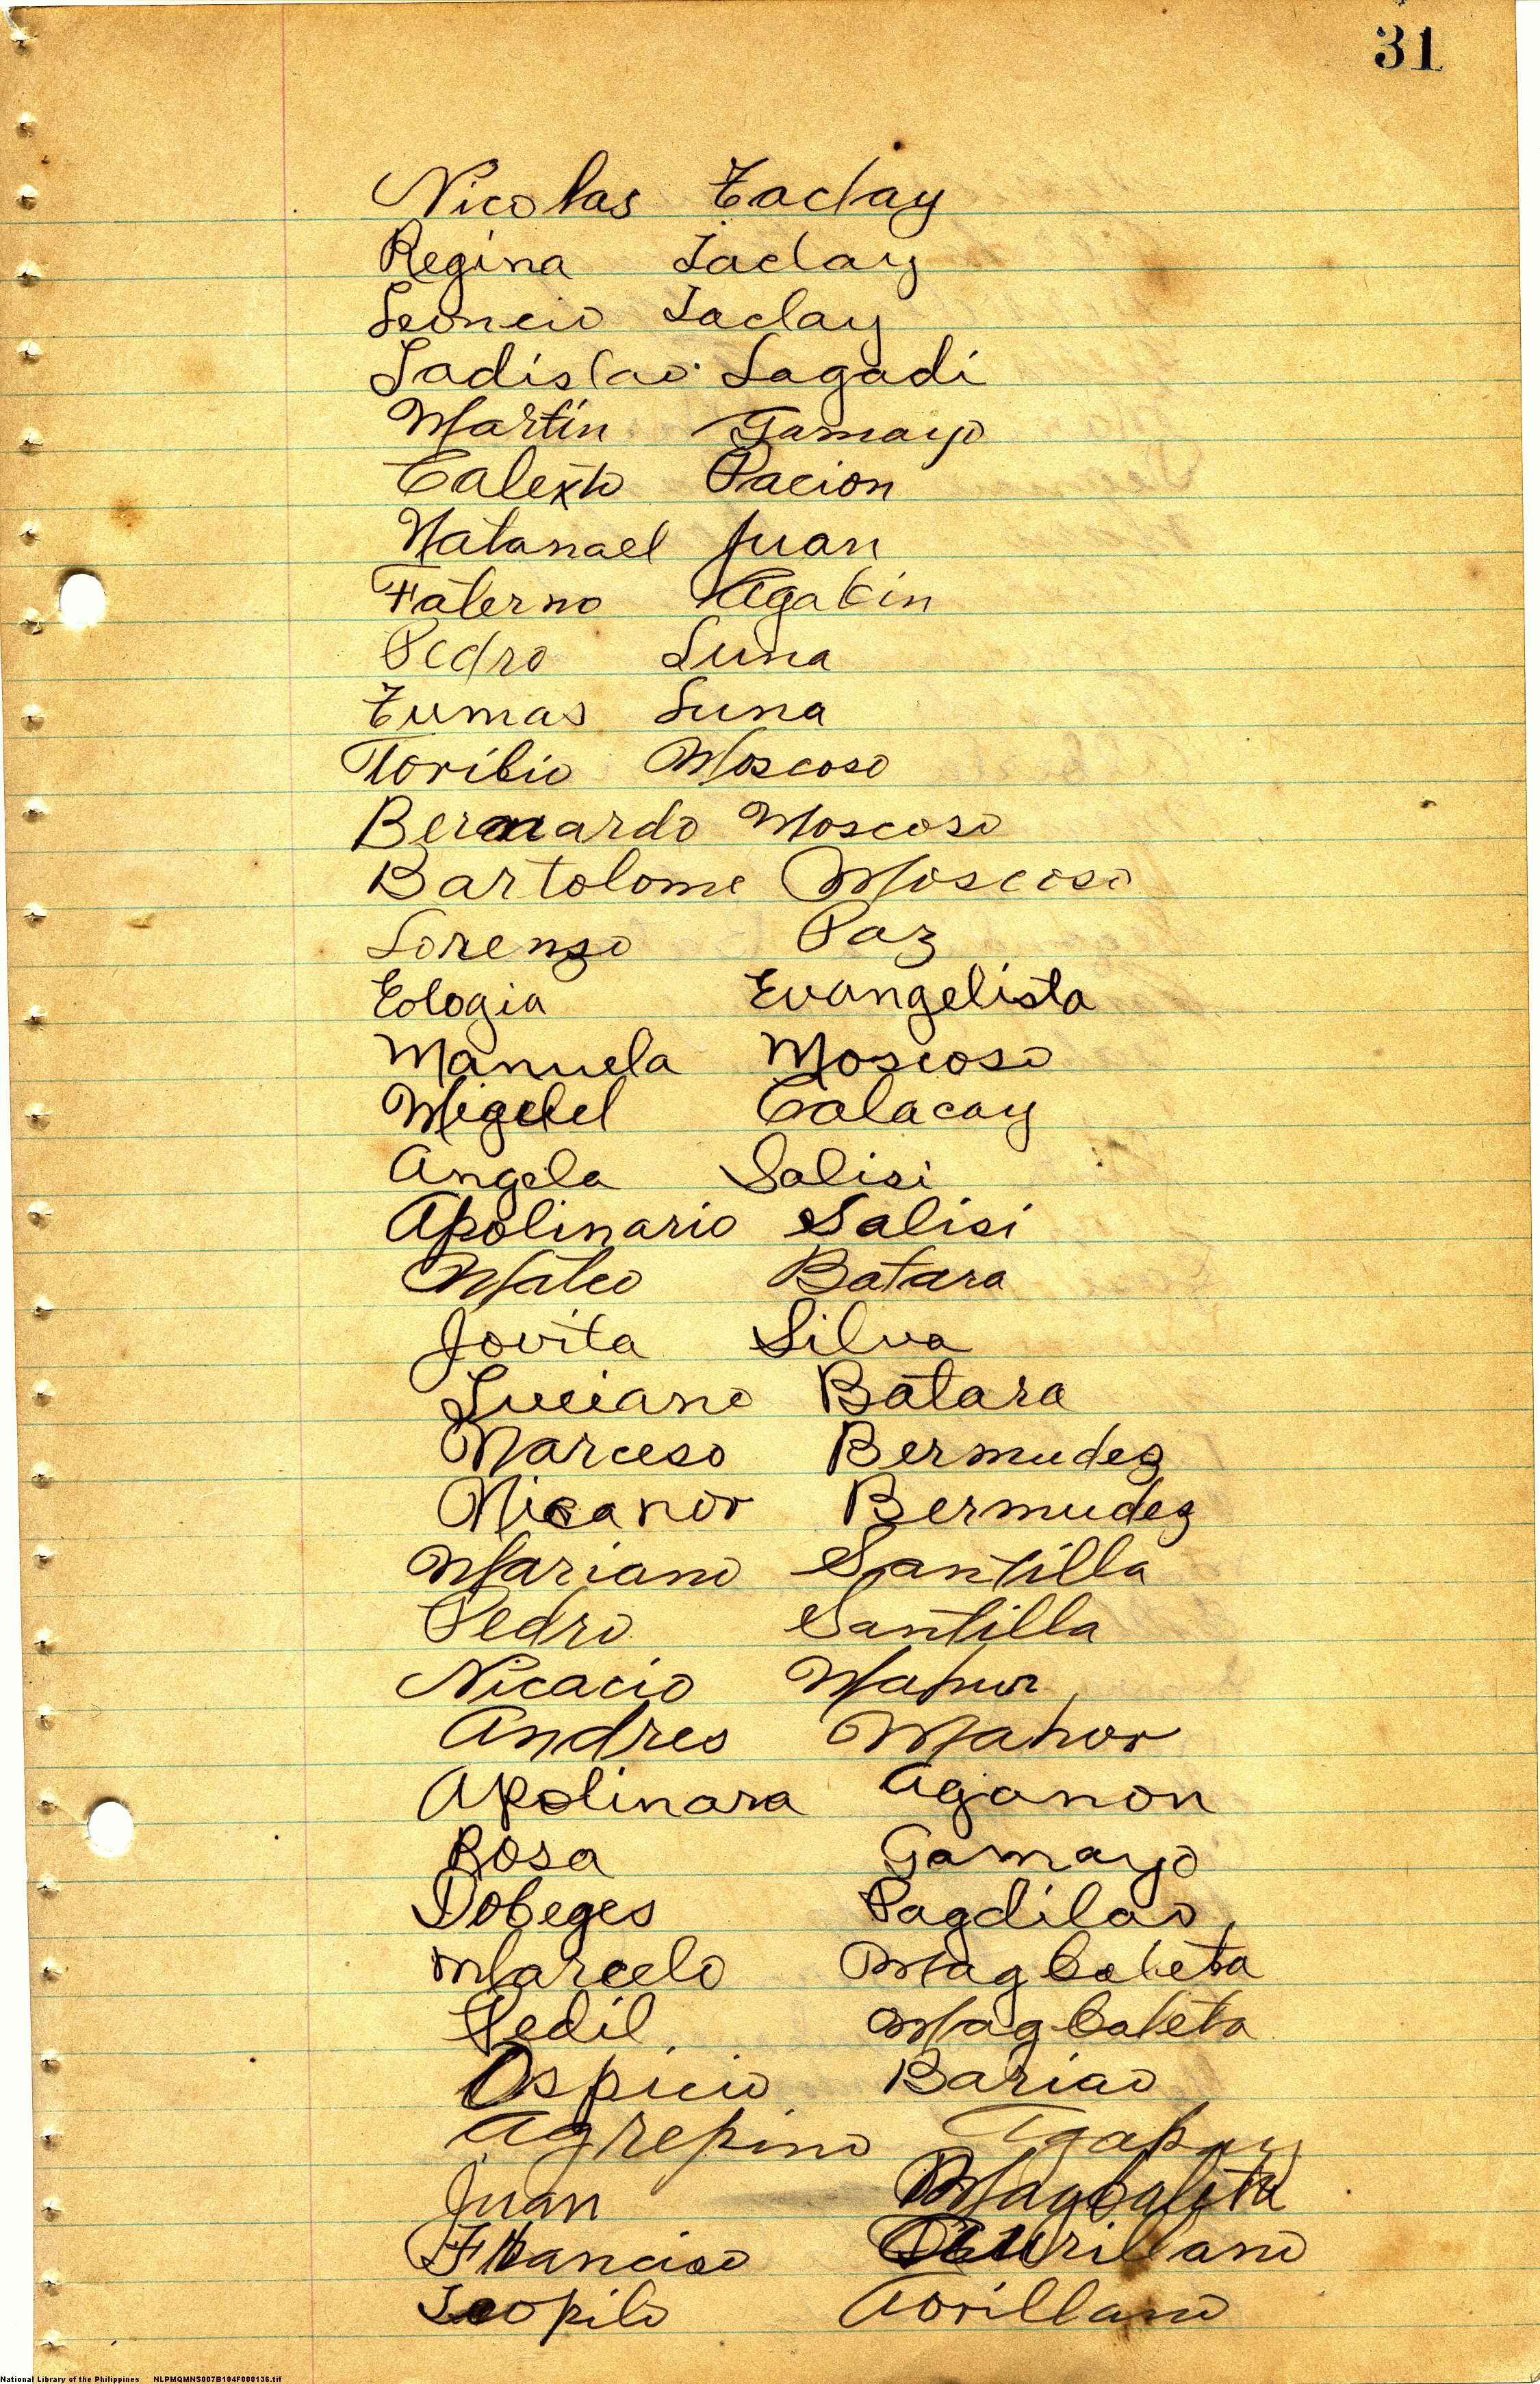 31
Nicolas Taclay
Regina Taclay
Leoncio Taclay
Ladislao Lagadi
Martin Gamayo
Calexto Pacion
Natanael Juan
Faterno Agatin
Pedro Luna
Tumas Luna
Toribio Moscoso
Bernardo Moscoso
Bartolome Moscoso
Lorenzo Paz
Eologia Evangelista
Manuela Moscoso
Miguel Calacay
Angela Salisi
Apolinario Salisi
Mateo Batara
Jovita Silva
Luciano Batara
Narceso Bermudez
Nicanor Bermudez
Mariano Santilla
Pedro Santilla
Nicacio
Andres
Apolinara Aganon
Rosa Gamayo
Dobeges Pagdilao
Marcelo Magbaleta
Fedil Magbaleta
Ospicio Bariao
Agrepino Agapay
Juan Magbalita
Francisco
Teopilo Torillano
National Library of the Philippines NLPMQMNS007B104F000136.tif